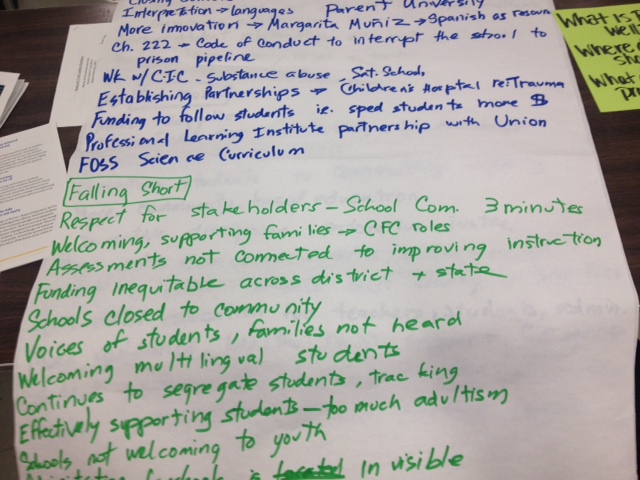 Interpretation → languages Parent University
More innovation → Margarita Muñiz → Spanish as resour
Ch. 222 → Code of Conduct to interrupt the school to
prison pipeline
WK w/ CIC - Substance abuse, Sat. School,
Establishing Partnerships → Children's Hospital re: Trauma
Funding to follow students ie. sped students more $
Professional Learning Institute partnership with Union
FOSS Science Curriculum
Falling Short
Respect for stakeholders - School Com. 3 minutes
Welcoming, supporting families → CFC roles
Assessments not connected to improving instruction
Funding inequitable across district + state
Schools closed to community
Voices of students, families not heard
Welcoming multilingual students
Continues to segregate students, tracking
Effectively supporting students - too much adultism
Schools not welcoming to youth
is located in visible
What is
well
Where
sho
What
pr